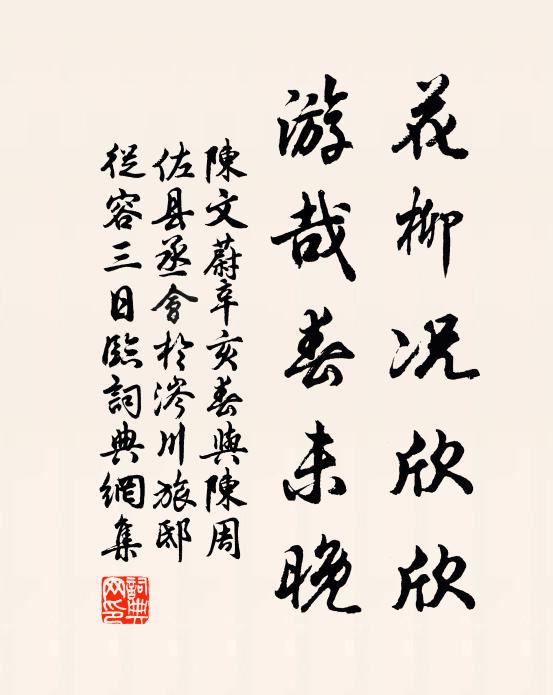 花柳况欣欣
游哉春未晚
陳文蔚辛亥春與陳周
佐县丞會於涔川旅邸
從容三日臨詞典網集
詞典網印